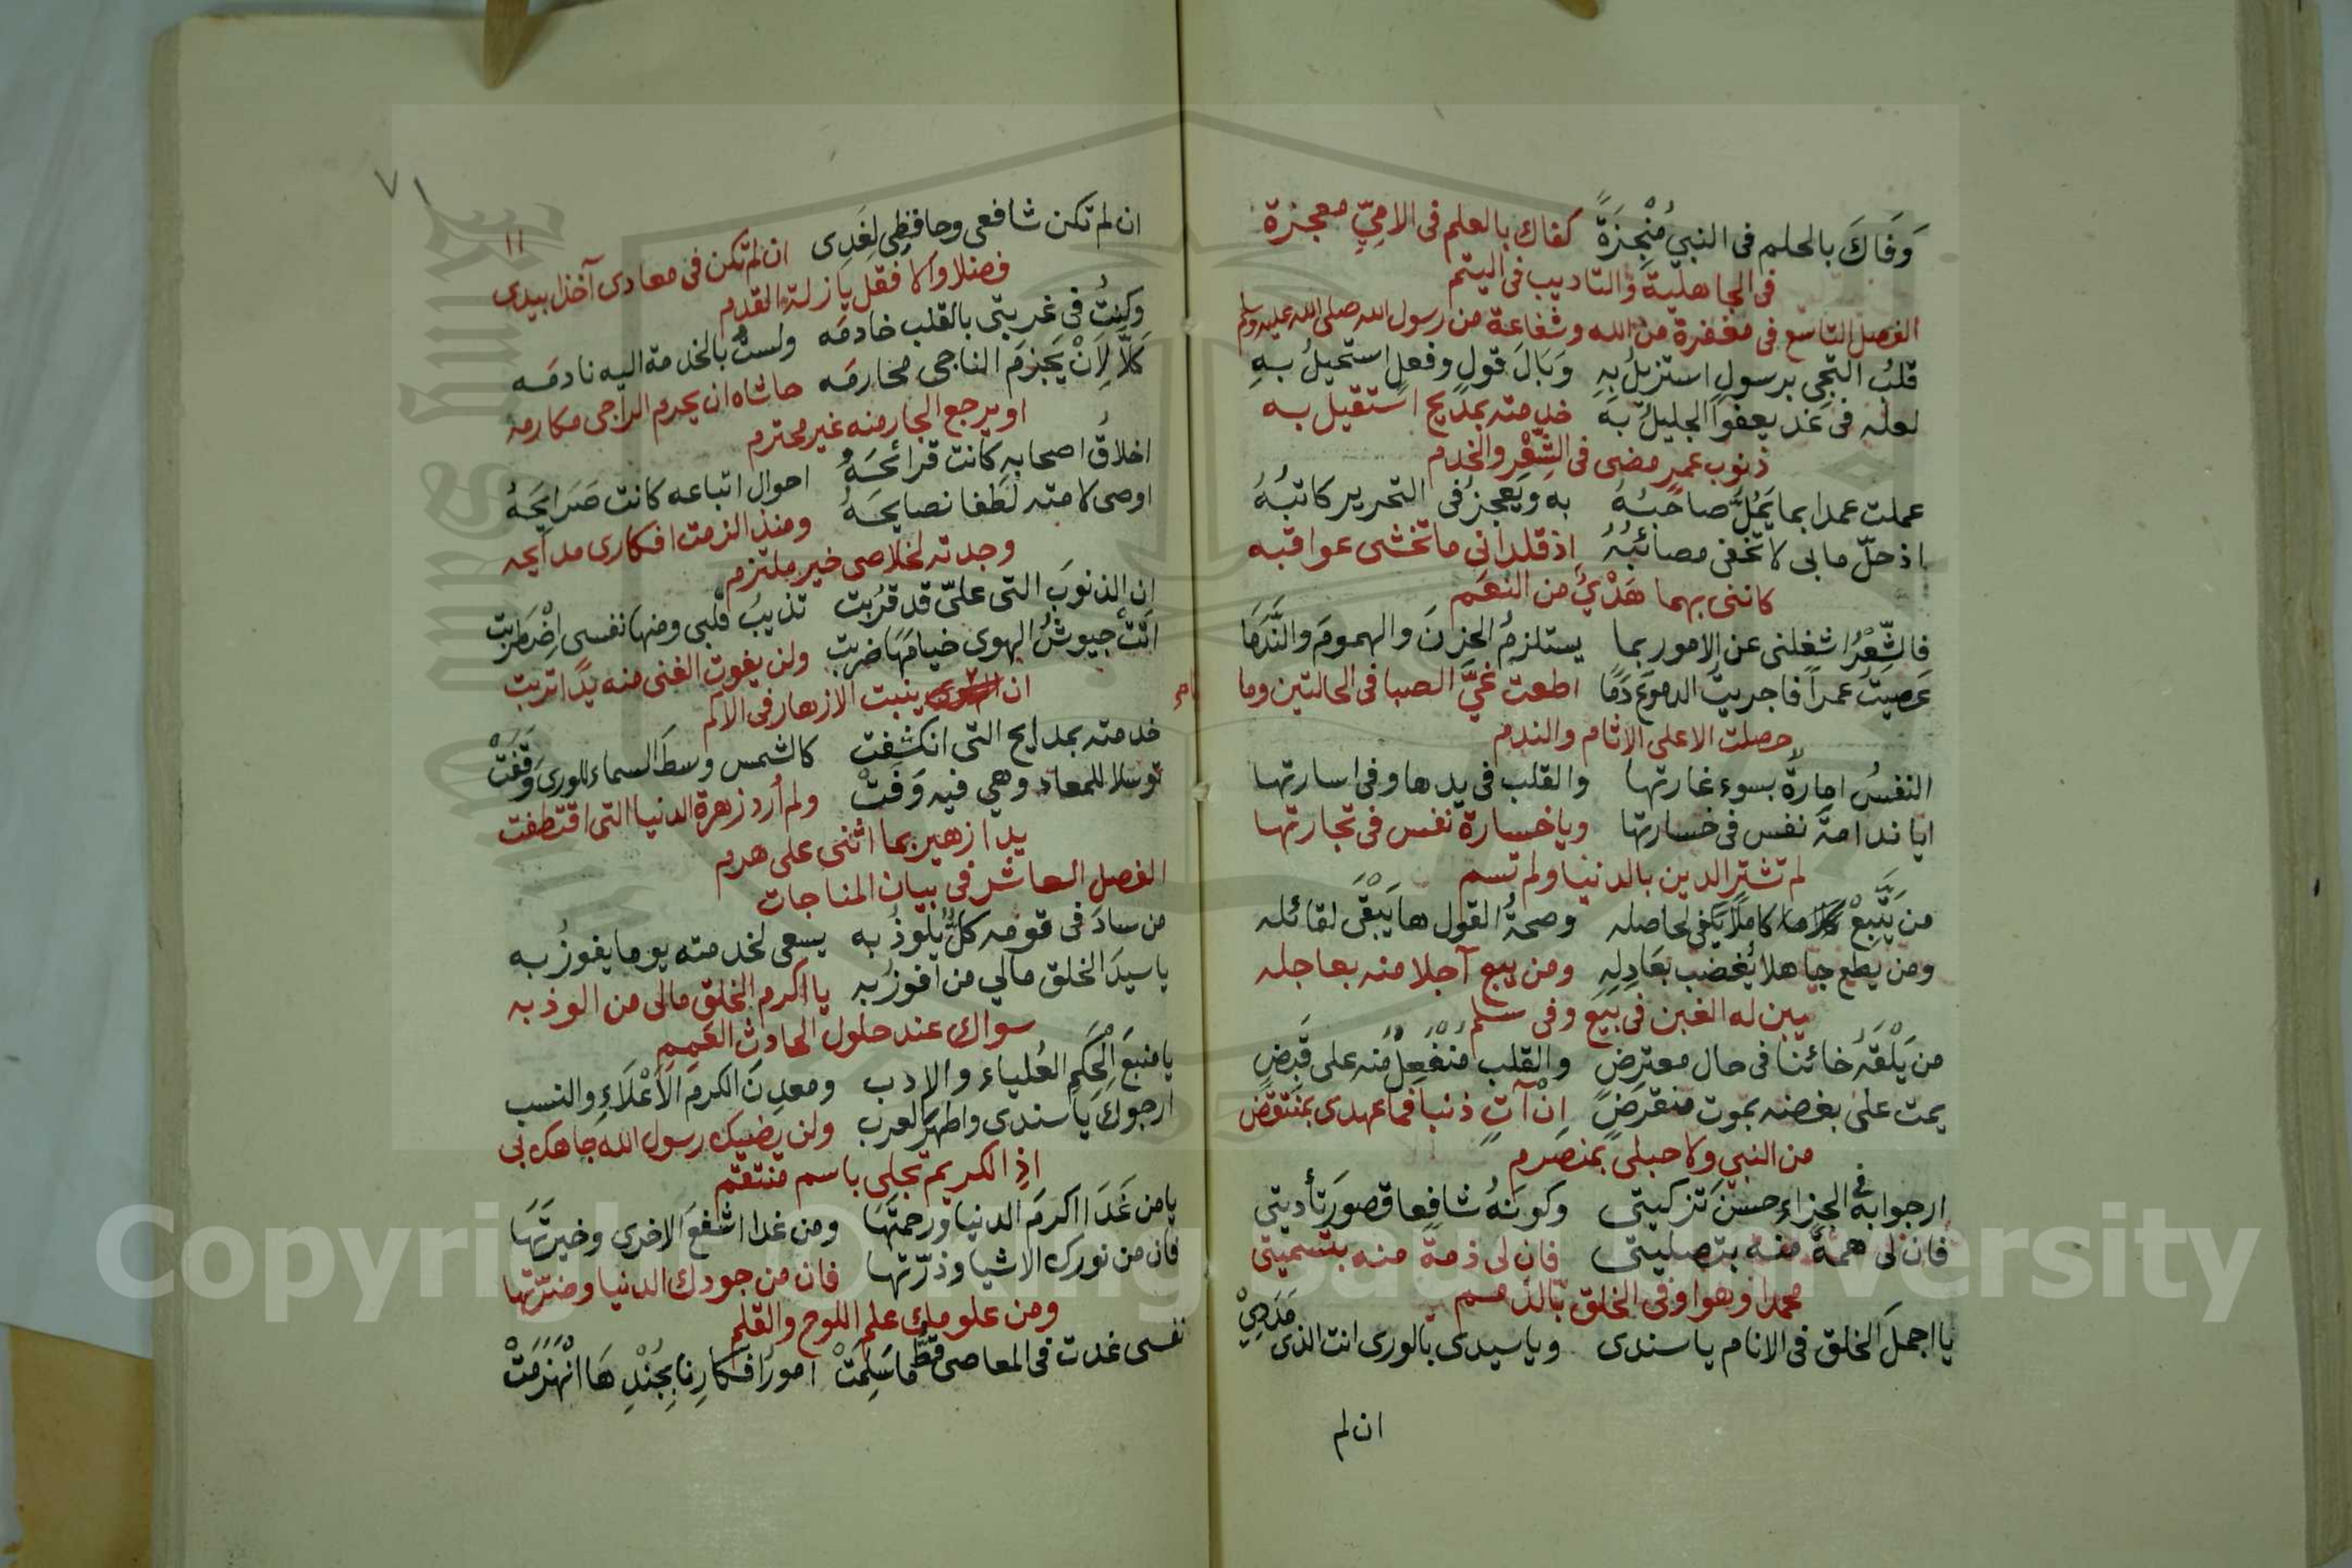 وَفَاكَ بالحلم فى النبيِ مُنْجِزَةً كفاك بالعلم فى الامِيِّ معجزة
فى الجاهلية والتاديب فى اليتم
الفصل التاسع فى مغفرة من الله وشفاعة من رسول الله صلى الله عليه وسلم
قلبُ التجى برسولٍ استزيلُ بِهِ وَبَالَ قولٍ وفعلٍ استحيلُ بِهِ
لعله فى غد يعفوا الجليلُ به خدمته بمديح استقيل به
ذنوب عمر مضى فى الشِّعْر والخدم
عملت عمدا بما يَمُلُّ صاحبُهُ به ويَعجزُ فى التحرير كاتبُهُ
اذ حلّ مابى لا تخفى مصائبُهُ اذ قلدانى ما تخشى عواقبه
كاننى بهما هَدْيٌ من النعَم
فالشِّعْرُ اشغلنى عن الامور بما يستلزمُ الحزنَ والهمومَ والنَّدَمَا
عَصيتُ عمراً فاجريتُ الدموعَ دَمًا اطعت غيَّ الصبا فى الحالتين وما
حصلت الا على الاثام والندم
النفسُ امارةٌ بسوء غارتها والقلب فى يدها وفى اسارتها
ايا ندامةَ نفس فى خسارتها وياخسارة نفس فى تجارتها
لم تشترِ الدين بالدنيا ولم تسم
من يَتَّبِعْ كاملاً يَكفى لحاصله وصحةُ القول ها يَبْقَى لقائله
ومن يطع جاهلا يُغضب بعَادِلِهِ ومن يبع آجلا منه بعاجله
يبن له الغبن فى بيع وفى سلم
من يَلْقَهُ خائنا فى حال معترِضٍ والقلب مُنْفَعِلٌ منه على قَبَضٍ
يمت على بغضه بموت منقرضٍ ان آتِ ذنبا فما عهدى بمنتقض
من النبي ولا حبلى بمنصرم
ارجوا به فى الجزاءِ حسنَ تزكيتى وكونَهُ شافِعا قصورَ تأديتى
فان لى همةً منه بتصليتى فان لى ذمة منه بتسميتى
محمدا وهو اوفى الخلق بالذمم
يا اجملَ الخلق فى الانام ياسندى وياسيدى بالورى انت الذى مَدَدِيْ
ان لم
٧١
١١
ان لم تكن شافعى وحافظِى لِغَدِى ان لم تكن فى معادى آخذا بيدى
فضلا والا فقل يا زلة القدم
وكنتُ فى غربتى بالقلب خادمَه ولستُ بالخدمة اليه نادمَه
كَلَّا لِاَنْ يَجزمَ الناجى محارمَه حاشاه ان يحرم الراجى مكارمه
او يرجع الجار منه غير محترم
اخلاقُ اصحابِه كانت قرائحَهُ احوال اتباعه كانت صَرَايحَهُ
اوصى لامته لَطفا نصايحَهُ ومنذ الزمت افكارى مدايحه
وجدته لخلاصى خير ملتزم
ان الذنوبَ التى علىّ قد قرُبت تذيبُ قلبى ومنها نفسى اِضْطربت
اتَتْ جيوشُ الهوى خيامَهَا ضربت ولن يفوت الغنى منه يدًا تربت
ان ينبت الازهار فى الاكم
خدمته بمدايح التى انكشفت كالشمس وسطَ السماء للورى وَقَفَتْ
توسلا للمعاد وهي فيه وَفَتْ ولم أرد زهرة الدنيا التى اقتطفت
يدا زهير بما اثنى على هرم
الفصل العاشر فى بيان المناجات
من سادَ فى قومه كلٌّ يلوذُ به يسعى لخدمته يوما يفوزُ به
ياسيدَ الخلق مالي من افوزُ به يا اكرم الخلق مالى من الوذ به
سواك عند حلول الحادث العَمِمِ
يامنبعَ الحِكَمِ العُلياء والادب ومعدِنَ الكرم الاَعْلَاءِ والنسب
ارجوكَ ياسندى واطهرَ العرب ولن يضيك رسول الله جاهك بى
اذِ الكريم تجلى باسم منتقم
يا من غَدَا اكرمَ الدنيا ورحمتَها ومن غدا اشفعَ الاخرى وخيرتَهَا
فان من نورك الاشيا وذرّتها فان من جودك الدنيا وضرّتها
ومن علومك علم اللوح والقلم
نفسى غدت فى المعاصى قطُّ ما سَلِمَتْ امورُ افكارِنا بِجُنْدِهَا انْهَزَمَتْ